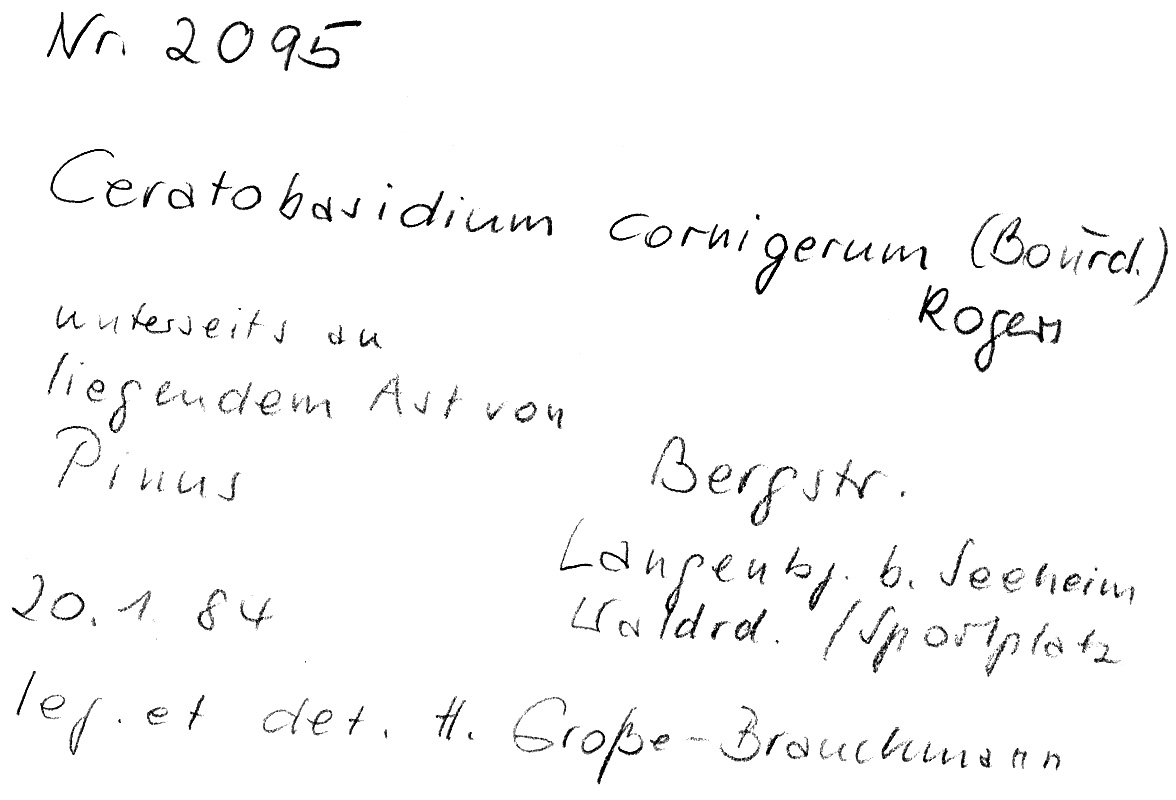 Nr. 2095
Ceratobasidium cornigerum (Bourd.)
Rogers
unterseits an
liegendem Ast von
Pinus
Bergstr.
Langenbg. b. Seeheim
20. 1. 84
Waldrd. / Sportplatz
leg. et det. H. Große-Brauckmann